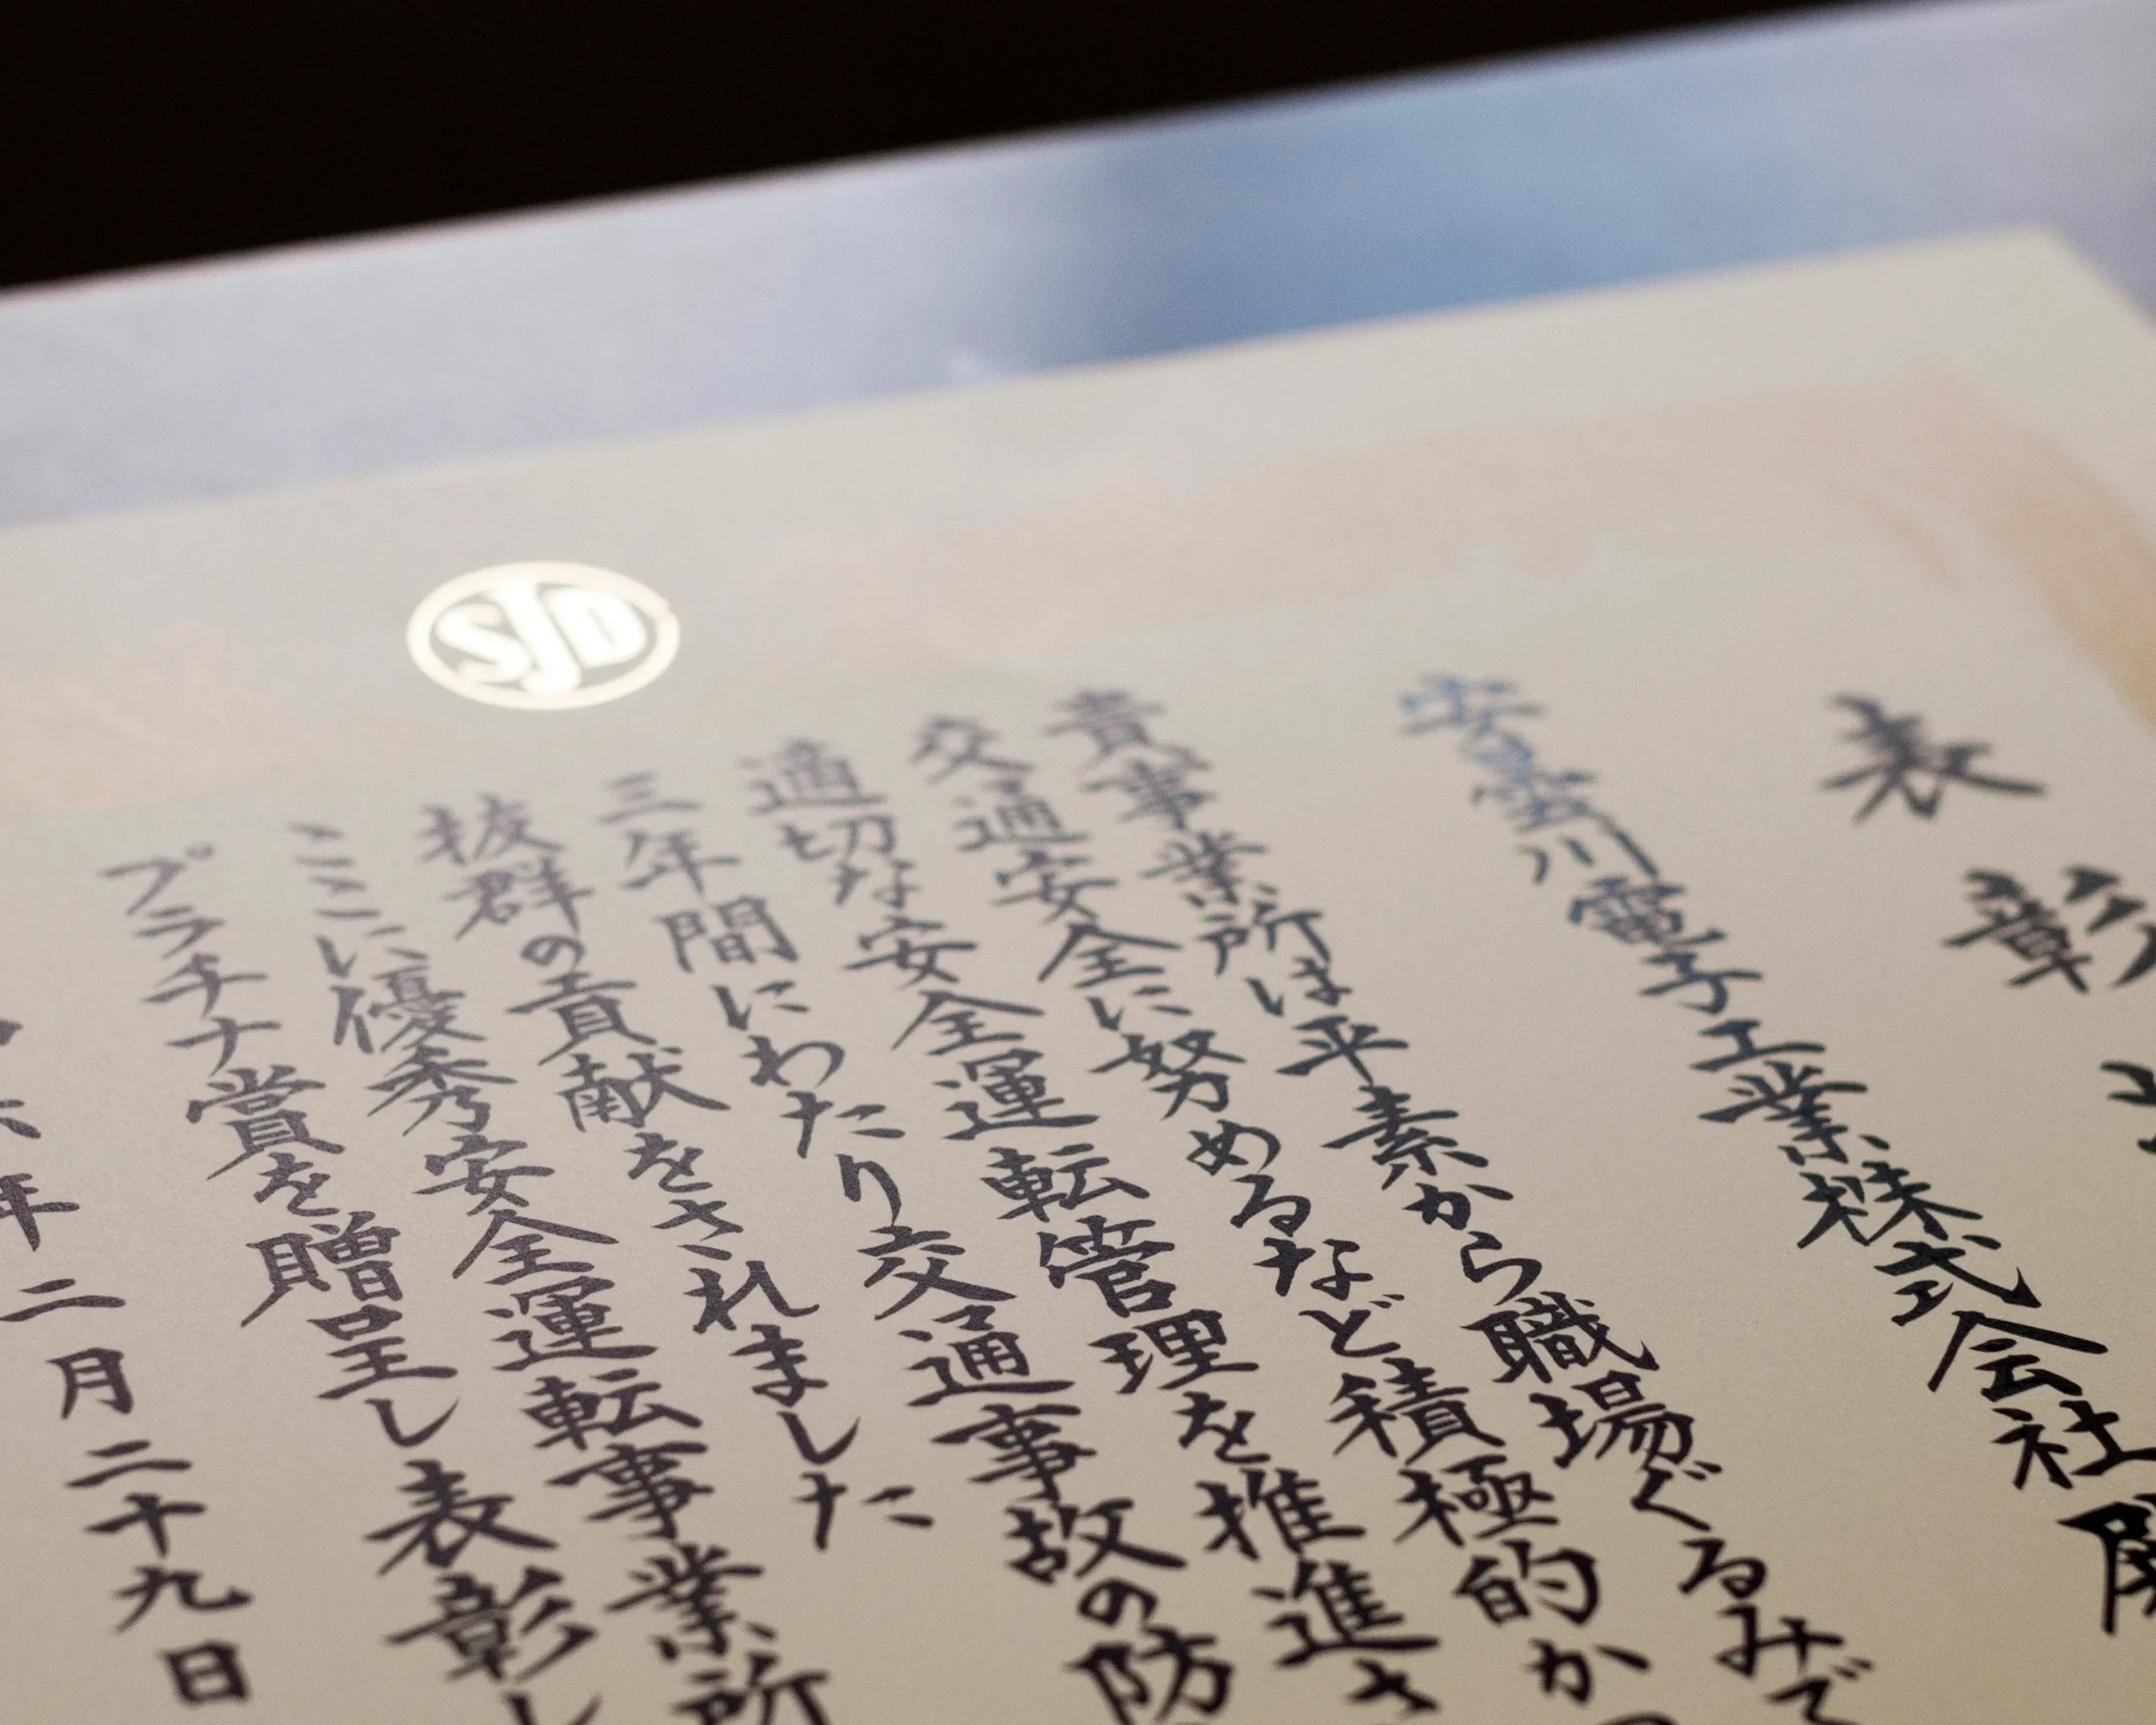 SJD
表彰
安曇川電子工業株式会社
貴事業所は平素から職場ぐるみで
交通安全に努めるなど積極的か
適切な安全運転管理を推進さ
三年間にわたり交通事故の防
抜群の貢献をされました
ここに優秀安全運転事業所
プラチナ賞を贈呈し表彰し
年二月二十九日